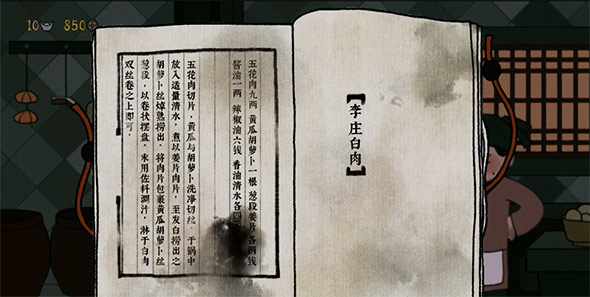 10 850
【李庄白肉】
五花肉九两 黄瓜胡萝卜一根 葱段姜片各两钱
酱油一两 辣椒油六钱 香油清水各四
五花肉切片，黄瓜与胡萝卜洗净切丝 于锅中
放入适量清水，煮以姜片肉片，至发白捞出之
胡萝卜丝焯熟捞出，将肉片包裹黄瓜胡萝卜丝
葱段，以卷状摆盘，末用佐料调汁，淋于白肉
双丝卷之上即可．